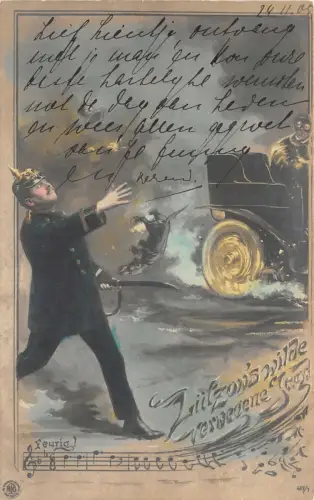 24.11.05
Lief Kientje ontvang
met je man en Kon onze
beste hartelijke wenschen
met de dag van heden
en wees allen gegroet
van je
en
Lützow's wilde
verwegene Jagd
Feurig.